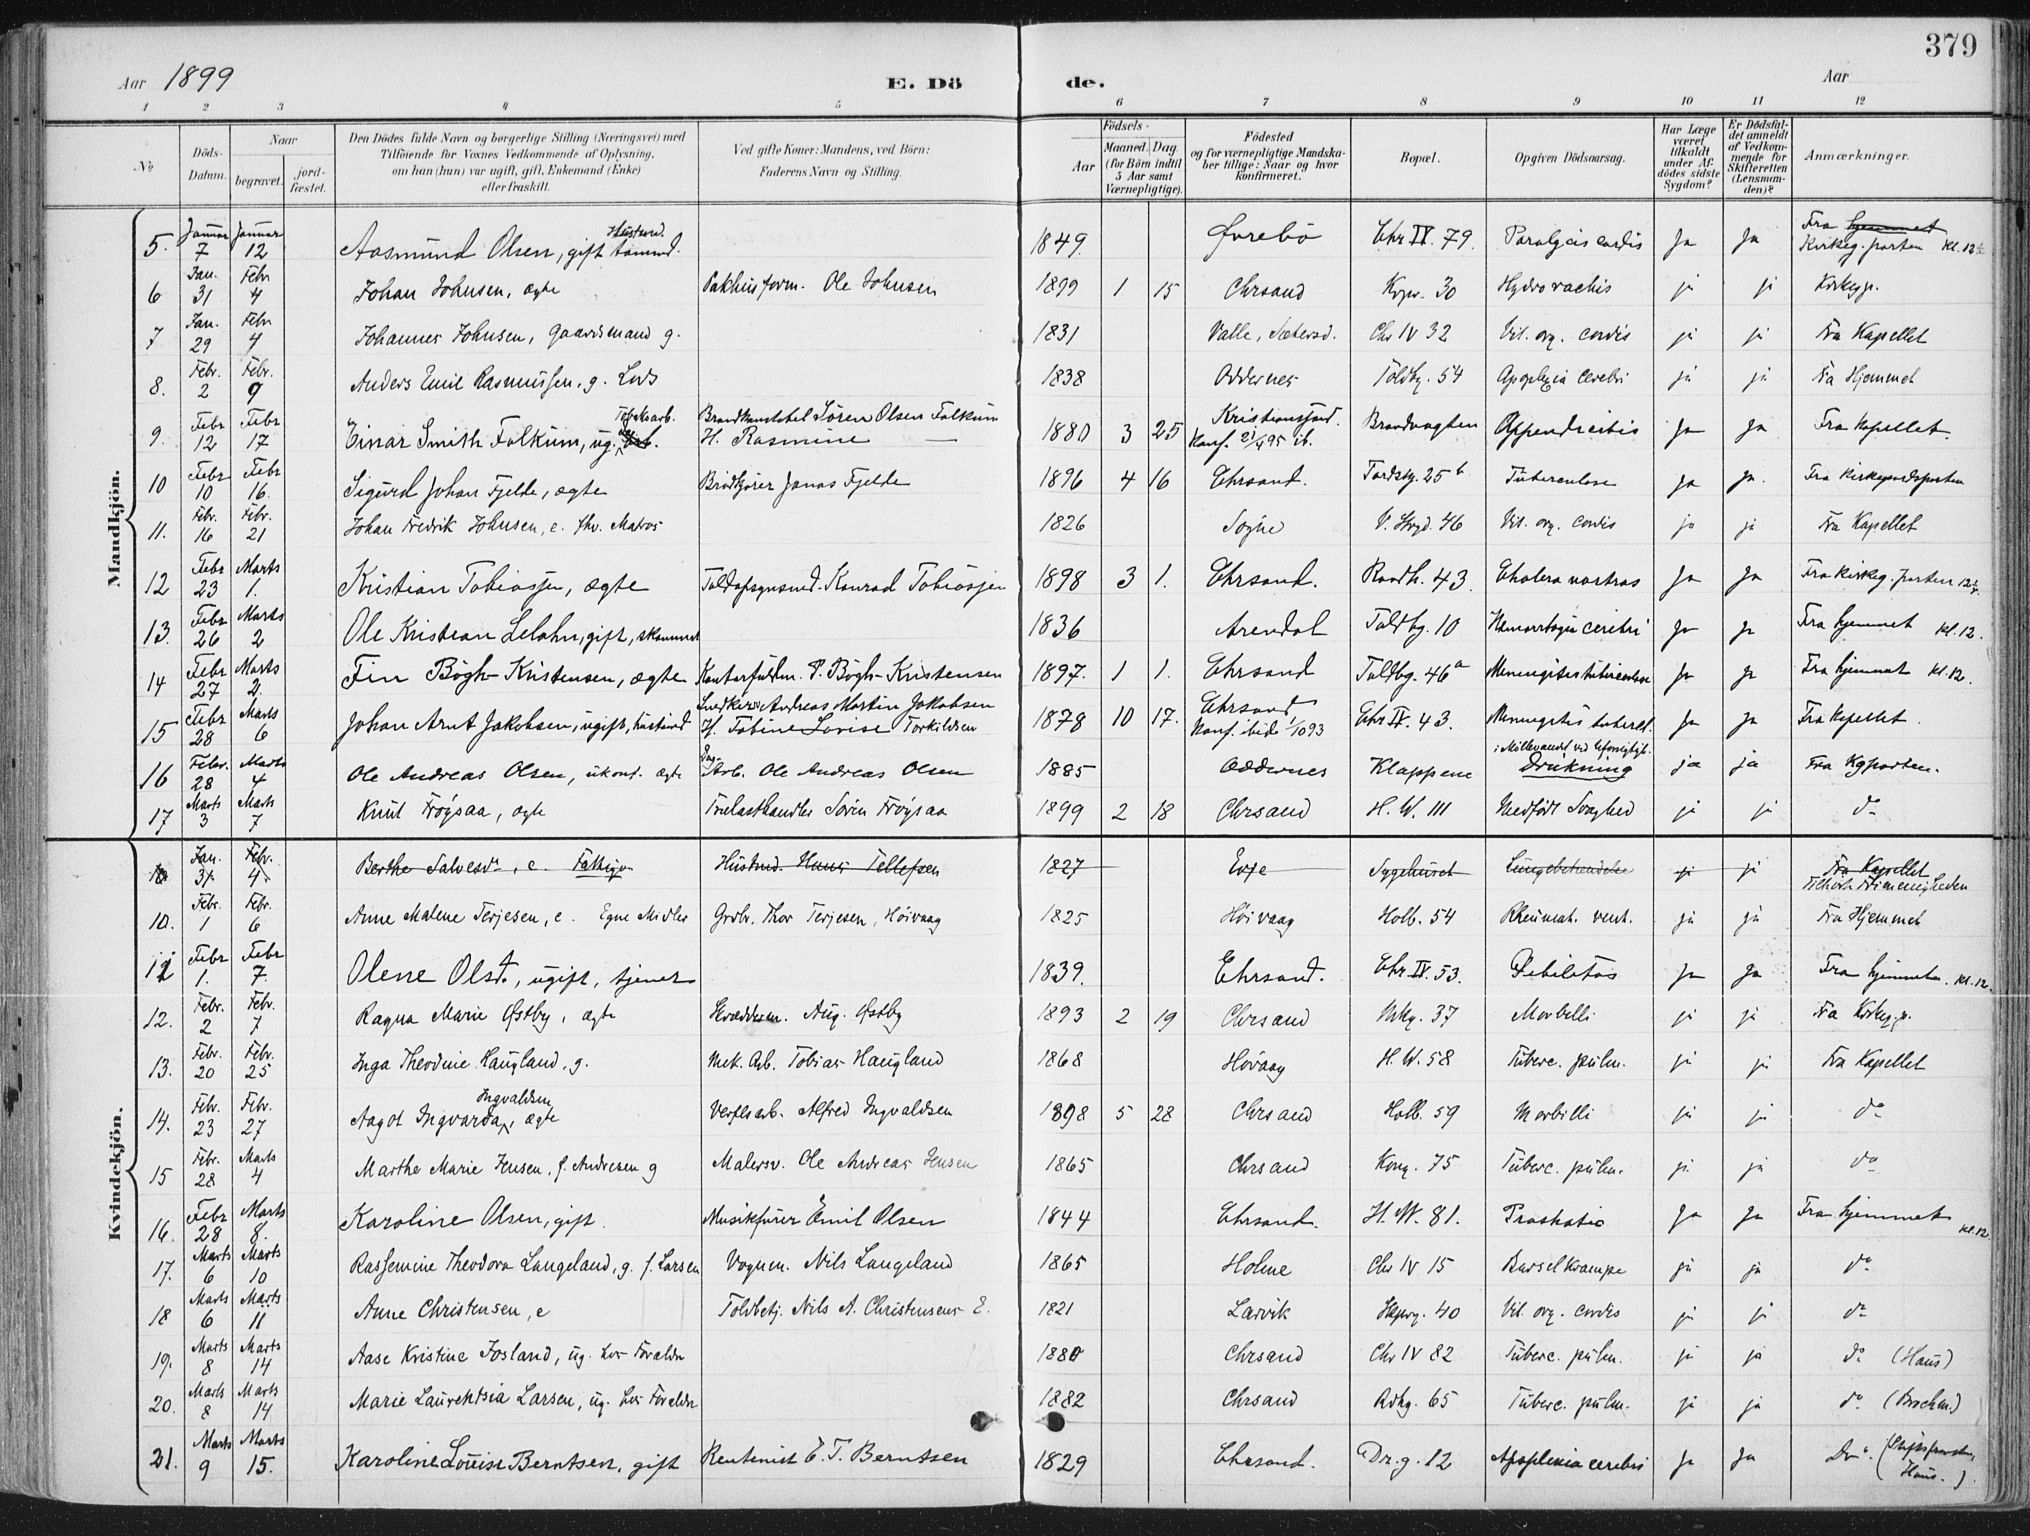 379
Aar 1899 E. Dö de. Aar
1 2 3 4 5 6 7 8 9 10 11 12
No
Döds-Datum.
Naar
begravet.
jord-fæstet.
Den Dödes fulde Navn og borgerlige Stilling (Næringsvei) med
Tilföiende for Voxnes Vedkommende af Oplysning,
om han (hun) var ugift, gift, Enkemand (Enke)
eller fraskilt.
Ved gifte Koner: Mandens, ved Börn:
Faderens Navn og Stilling.
Födsels-
Aar
Maaned. Dag.
(for Börn indtil
5 Aar samt
Værnepligtige).
Födested
og for værnepligtige Mandska-
ber tillige: Naar og hvor
Konfirmeret.
Bopæl.
Opgiven Dödsaarsag.
Har Læge
været
tilkaldt
under Af-
dödes sidste
Sygdom?
Er Dödsfal-
det anmeldt
af Vedkom-
mende for
Skifteretten
(Lensman-
den)?
Anmærkninger.
Mandkjön.
5. Januar 7 Januar 12 Aasmund Olsen, gift 1849. Øvrebö Chr IV. 79. Paralysis cordis Ja Ja Fra hjemmet Kirkeg. porten kl. 12
6 Jan. 31 Febr 4 Johan Johnsen, ægte Pakhusform. Ole Johnsen 1899 1 15 Chrsand 30 Hydrorachis ja ja Kirkegp.
7 Jan. 29 Febr 4 Johannes Johnsen, Gaardmand g. 1831 Valle, Sætersd. Chr IV 32 Vit. org. cordis ja ja Fra Kapellet
8. Febr. 2 Febr. 9 Anders Emil Rasmussen, g. Lods 1838 Oddernes Toldbg. 54 Apoplexia cerebri ja ja Fra Hjemmet
9. Febr 12 Febr 17 Einar Smith Falkum, ug. Brandkonstabel Sören Olsen Falkum H. Rasmine 1880 3 25 Kristianssand. Konf. 21/4 95 ib. Brandvagten Appendicitis Ja Ja Fra Kapellet.
10 Febr 10 Febr 16. Sigurd Johan Fjelde, ægte Jonas Fjelde 1896 4 16 Chrsand. 25 b Tuberculose Ja Ja. Fra Kirkegaardsporten
11. Febr. 16 Febr. 21 Johan Fredrik Johnsen, e. fhv. Matros 1826 Søgne V. Strgd. 46 Vit. org. cordis ja ja Fra Kapellet
12 Febr 23 Marts 1. Kristian Tobiassen, ægte Konrad Tobiassen 1898 3 1. Chrsand. Raadh. 43. Cholera nostras Ja Ja Fra Kirkeg. porten
13. Febr 26 Marts 2 Ole Kristian, gift, 1836 Arendal Toldbg. 10 cerebri Ja Ja Fra hjemmet kl. 12.
14 Febr 27 Marts 2. Fin Bögh-Kristensen, ægte P. Bögh-Kristensen 1897. 1 1. Chrsand Toldbg. 46 a Ja Ja Fra hjemmet kl. 12.
15 Febr 28 Marts 6 Johan Arnt Jakobsen, ugift, Andreas Martin Jakobsen H. Tobine Lovise Torkildsen 1878 10 17. Chrsand Konf. ibid 1/10 93 Chr IV. 43. Ja Ja Fra Kapellet.
16 Febr. 28 Marts 4 Ole Andreas Olsen, ukonf. ægte Dag Arb. Ole Andreas Olsen 1885 Oddernes Klappene Drukning ja ja Fra Kgporten.
17 Marts 3 Marts 7 Knut Frøysaa, ægte Trelasthandler Søren Frøysaa 1899 2 18 Chrsand H. W. 111 Medfødt Svaghed ja ja do
Kvindekjön.
Jan. 31 Febr. 4 Berthe Salvesdr, e. Hustrud Hans Tellefsen 1827 Evje Sygehuset Lungebetændelse ja ja Fra Kapellet
10. Febr. 1 Febr. 6 Anne Malene Terjesen, e. Egne Midler Grdbr. Thor Terjesen, Höivaag 1825 Höivaag Holb. 54 ja ja Fra Hjemmet
Febr 1. Febr 7. Olene, ugift, tjener 1839. Chrsand. Chr. IV. 53. Debilitas Ja Ja Fra hjemmet. kl. 12.
12. Febr. 2 Febr. 7 Ragna Marie Østby, ægte Aug. Østby 1893 2 19 Chrsand 37 Morbilli ja ja Fra Kirkeg.p.
13. Febr. 20 Febr. 25 Inga Theodine Haugland, g. Mek. Arb. Tobias Haugland 1868 Høvaag H. W. 58 Tuberc. pulm. ja ja Fra Kapellet
14. Febr. 23 Febr. 27 Aagot Ingvarda Ingvaldsen, ægte Verftsarb. Alfred Ingvaldsen 1898 5 28 Chrsand Holb. 59 Morbilli ja ja do
15 Febr. 28 Marts 4 Marthe Marie Jensen, f. Andresen g Malersv. Ole Andreas Jensen 1865 Chrsand Kong. 75 Tuberc. pulm. ja ja do
16. Febr 28 Marts 8. Karoline Olsen, gift. Emil Olsen 1844 Chrsand. H. W. 81. Ja Ja Fra hjemmet kl. 12.
17. Marts 6 Marts 10 Theodora Langeland, g. f. Larsen Vognm. Nils Langeland 1865 Holme Chr IV 15 Barselkrampe ja ja do
18 Marts 6 Marts 11 Anne Christensen, e Toldbetj. Nils A. Christensens E. 1821 Larvik 40 Vit. org. cordis ja ja do
19. Marts 8 Marts 14 Aase Kristine Fosland, ug. hos Forældr 1880 Chrsand Chr IV 82 Tuberc. pulm. ja ja do (Haus)
20. Marts 8 Marts 14 Marie Laurentsia Larsen, ug. hos Forældr 1882 Chrsand 65 Tuberc. pulm. ja ja do
21. Marts 9 Marts 15. Karoline Louise Berntsen, gift Rentenist E. T. Berntsen 1829 Chrsand. Dr.g. 12 Apoplexia cerebri Ja Ja Do (Haus.)